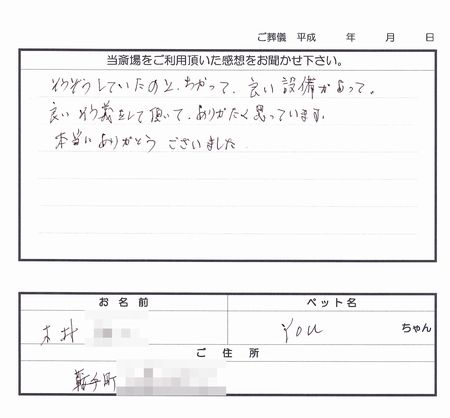 ご葬儀 平成 年 月 日
当斎場をご利用頂いた感想をお聞かせ下さい。
そうぞうしていたのと、ちがって、良い設備があって。
良い葬義をして頂いて、ありがたく思っています。
本当にありがとう ございました
お名前 ペット名
木井 You ちゃん
ご住所
鞍手町